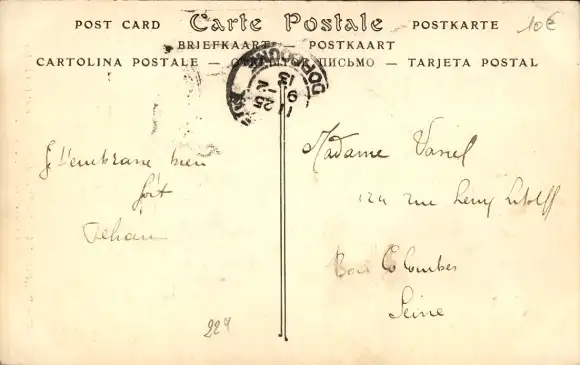 POST CARD Carte Postale POSTKARTE
10€
BRIEFKAART — POSTKAART
CARTOLINA POSTALE — ОТКРЫТОЕ ПИСЬМО — TARJETA POSTAL
DORDOGNE
11 25
9 - 2
13
Je t'embrasse bien
fort
Jehan
Madame Variel
124 rue Henry Litolff
Bois Colombes
Seine
224